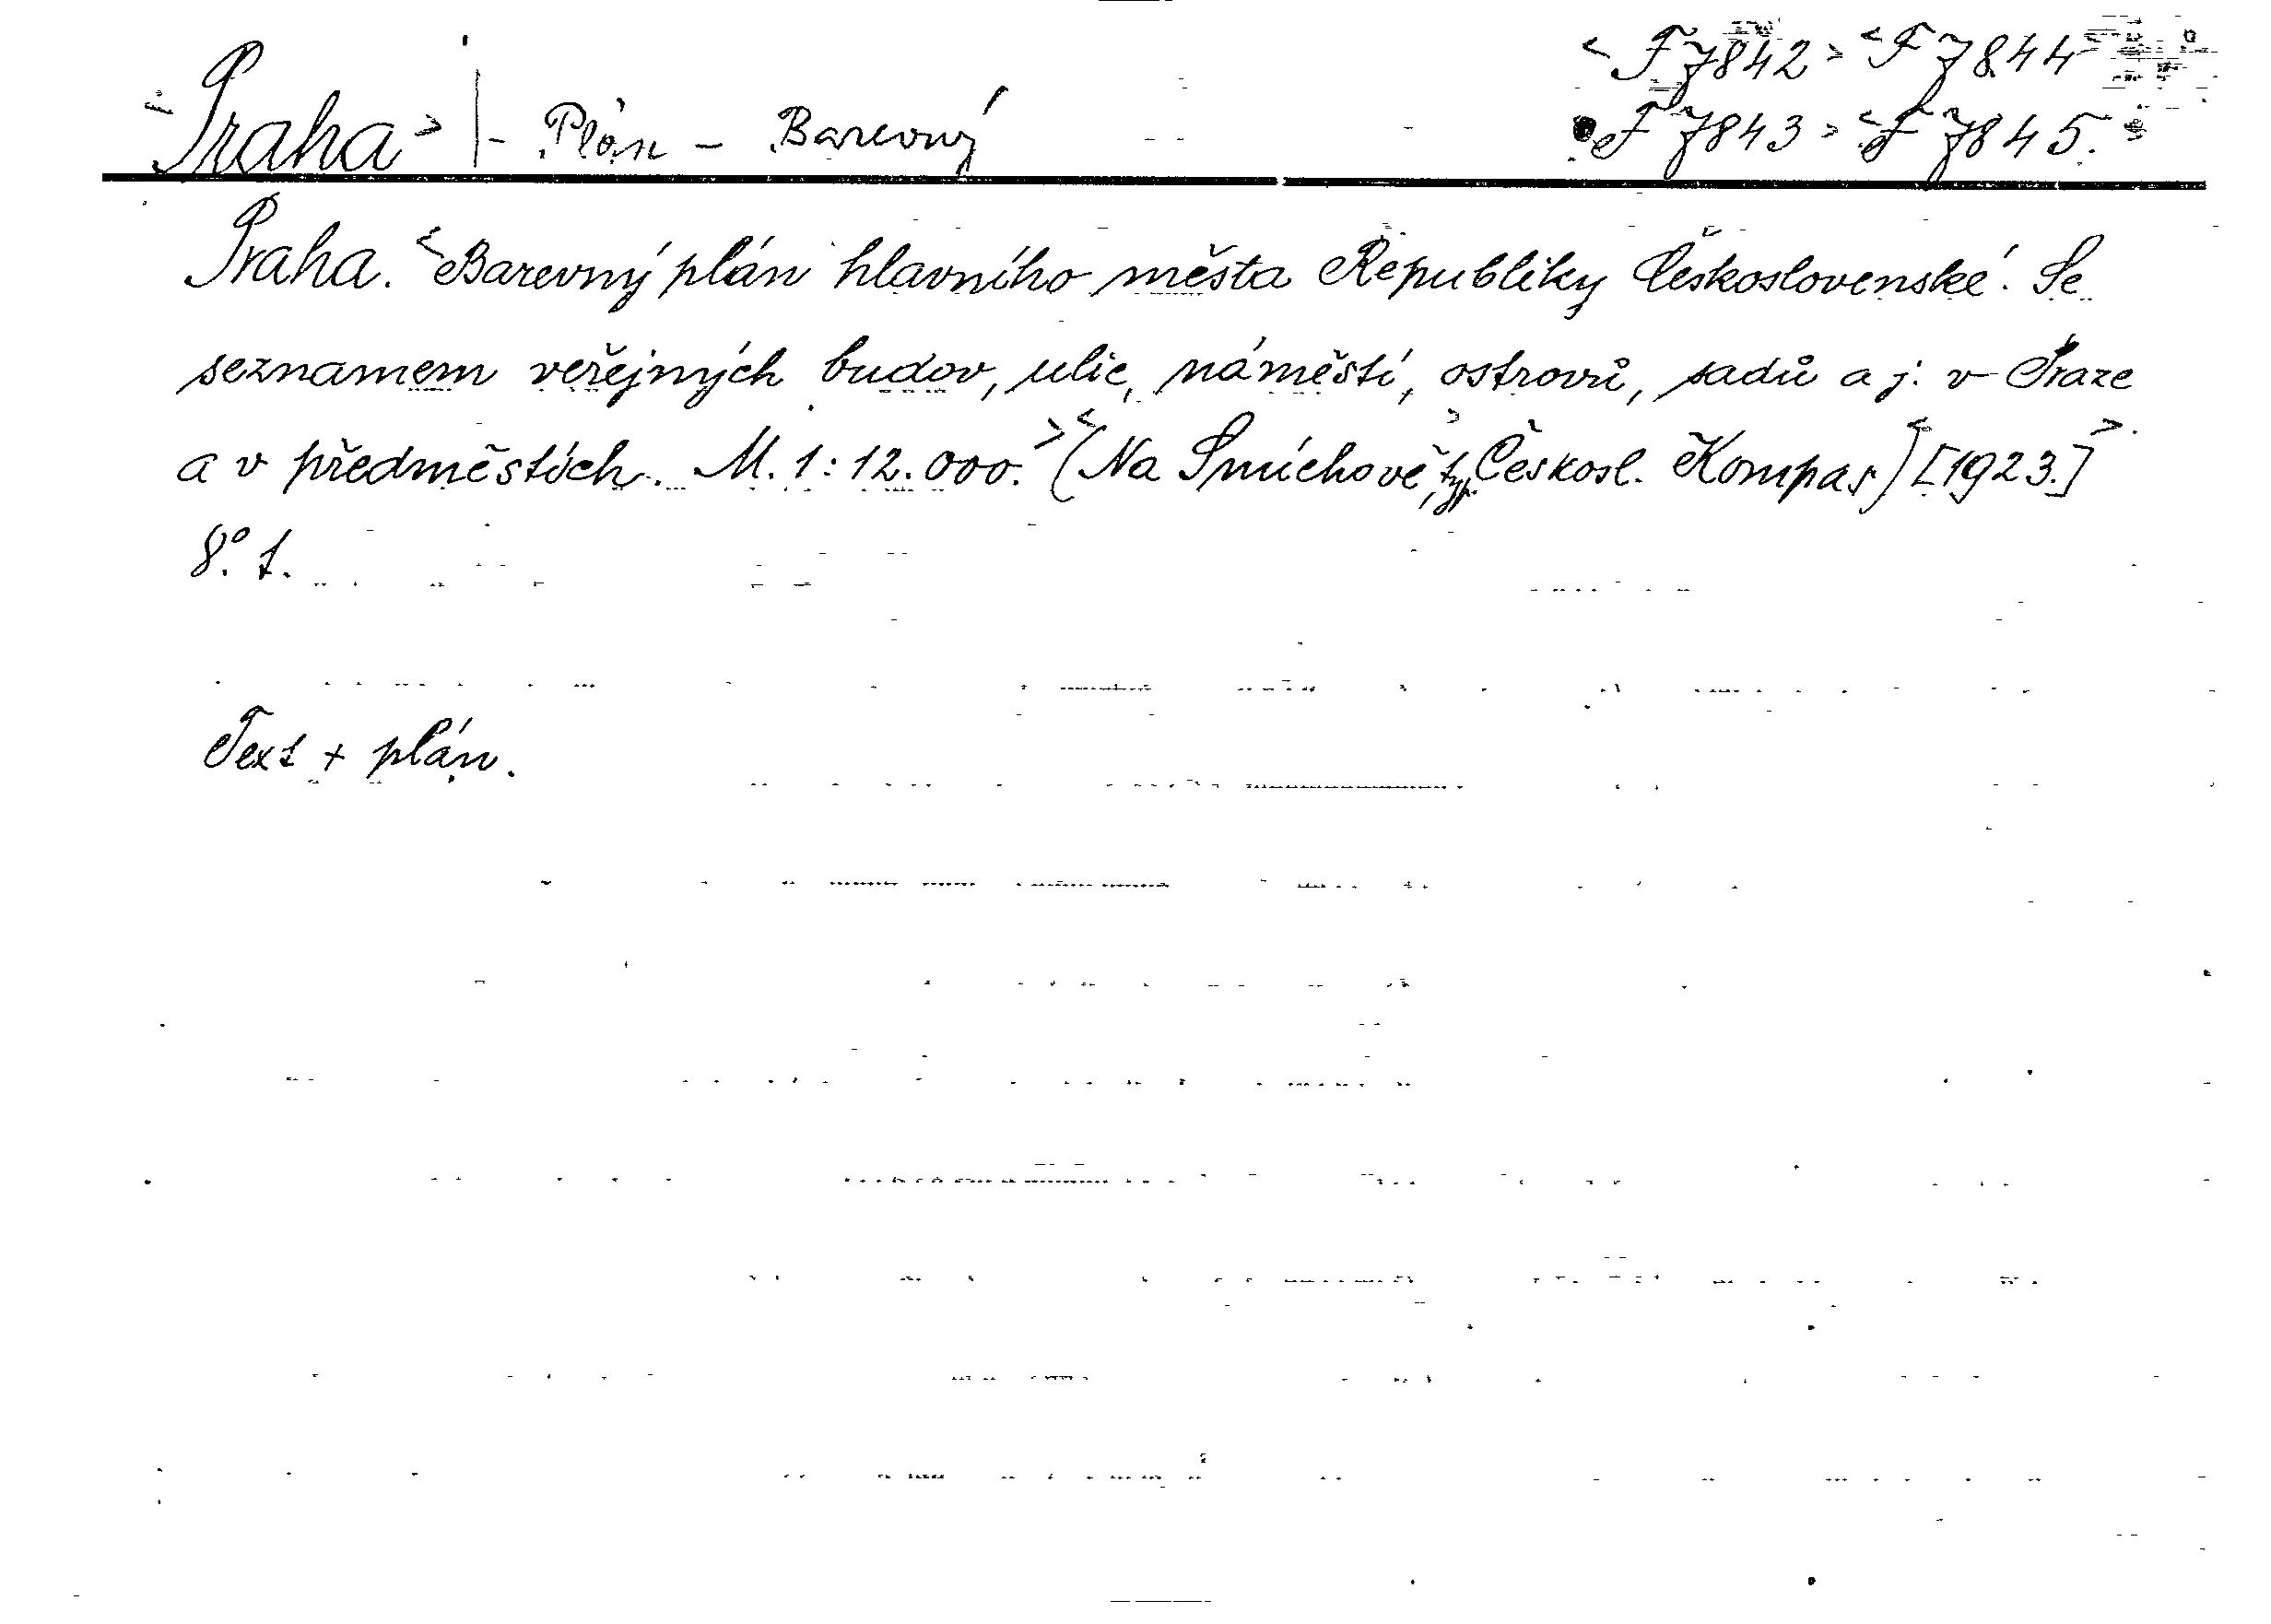 <Praha> | - Plán - Barevný
<F 7842> <F 7844>
F 7843> <F 7845.>
Praha. <Barevný plán hlavního města Republiky Československé. Se
seznamem veřejných budov, ulic, náměstí, ostrovů, sadů a j. v Praze
a v předměstích. M. 1:12.000.> <(Na Smíchově, typ. Českosl. Kompas) [1923.]>
8°. 1.
Text + plán.